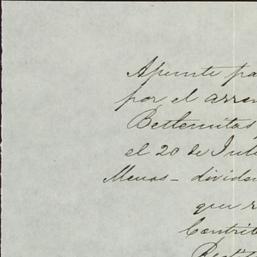 Apunte pa
por el arren
Betlemitas
el 20 de Juli
Menos - dividen
que r
Contrib